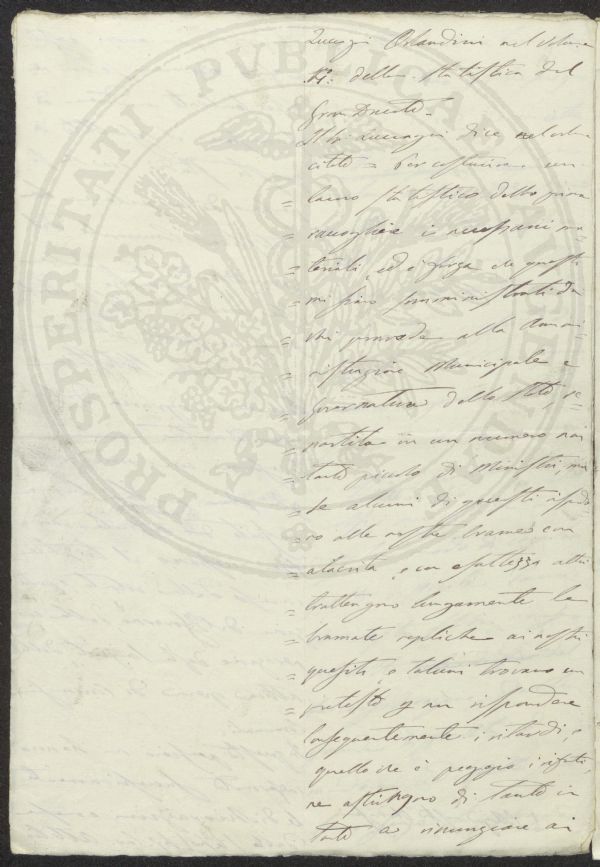 Zuccagni Orlandini nel Volume
12: della Statistica del
Gran Ducato =
Il Sig. Zuccagni dice nel
citato = Per costruire un
= lavoro statistico debbo prima
= raccogliere i necessari ma-
= teriali, ed è forza che questi
= mi siano somministrati da
= chi presiede alla Ammi-
= nistrazione Municipale e
= Governativa dello Stato, re-
= partita in un numero non
= tanto piccolo di Ministri: ma
= se alcuni di questi rispondo-
= no alle nostre brame con
= alacrità, e con esattezza altri
= trattengono lungamente le
= bramate repliche ai nostri
= quesiti, e taluni trovano un
= pretesto per non rispondere
Conseguentemente i ritardi, e
quello che è peggio i rifiuti,
ne astringono di tanto in
tanto a rinunziare ai
PROSPERITATI PUBLICAE AUGENDAE